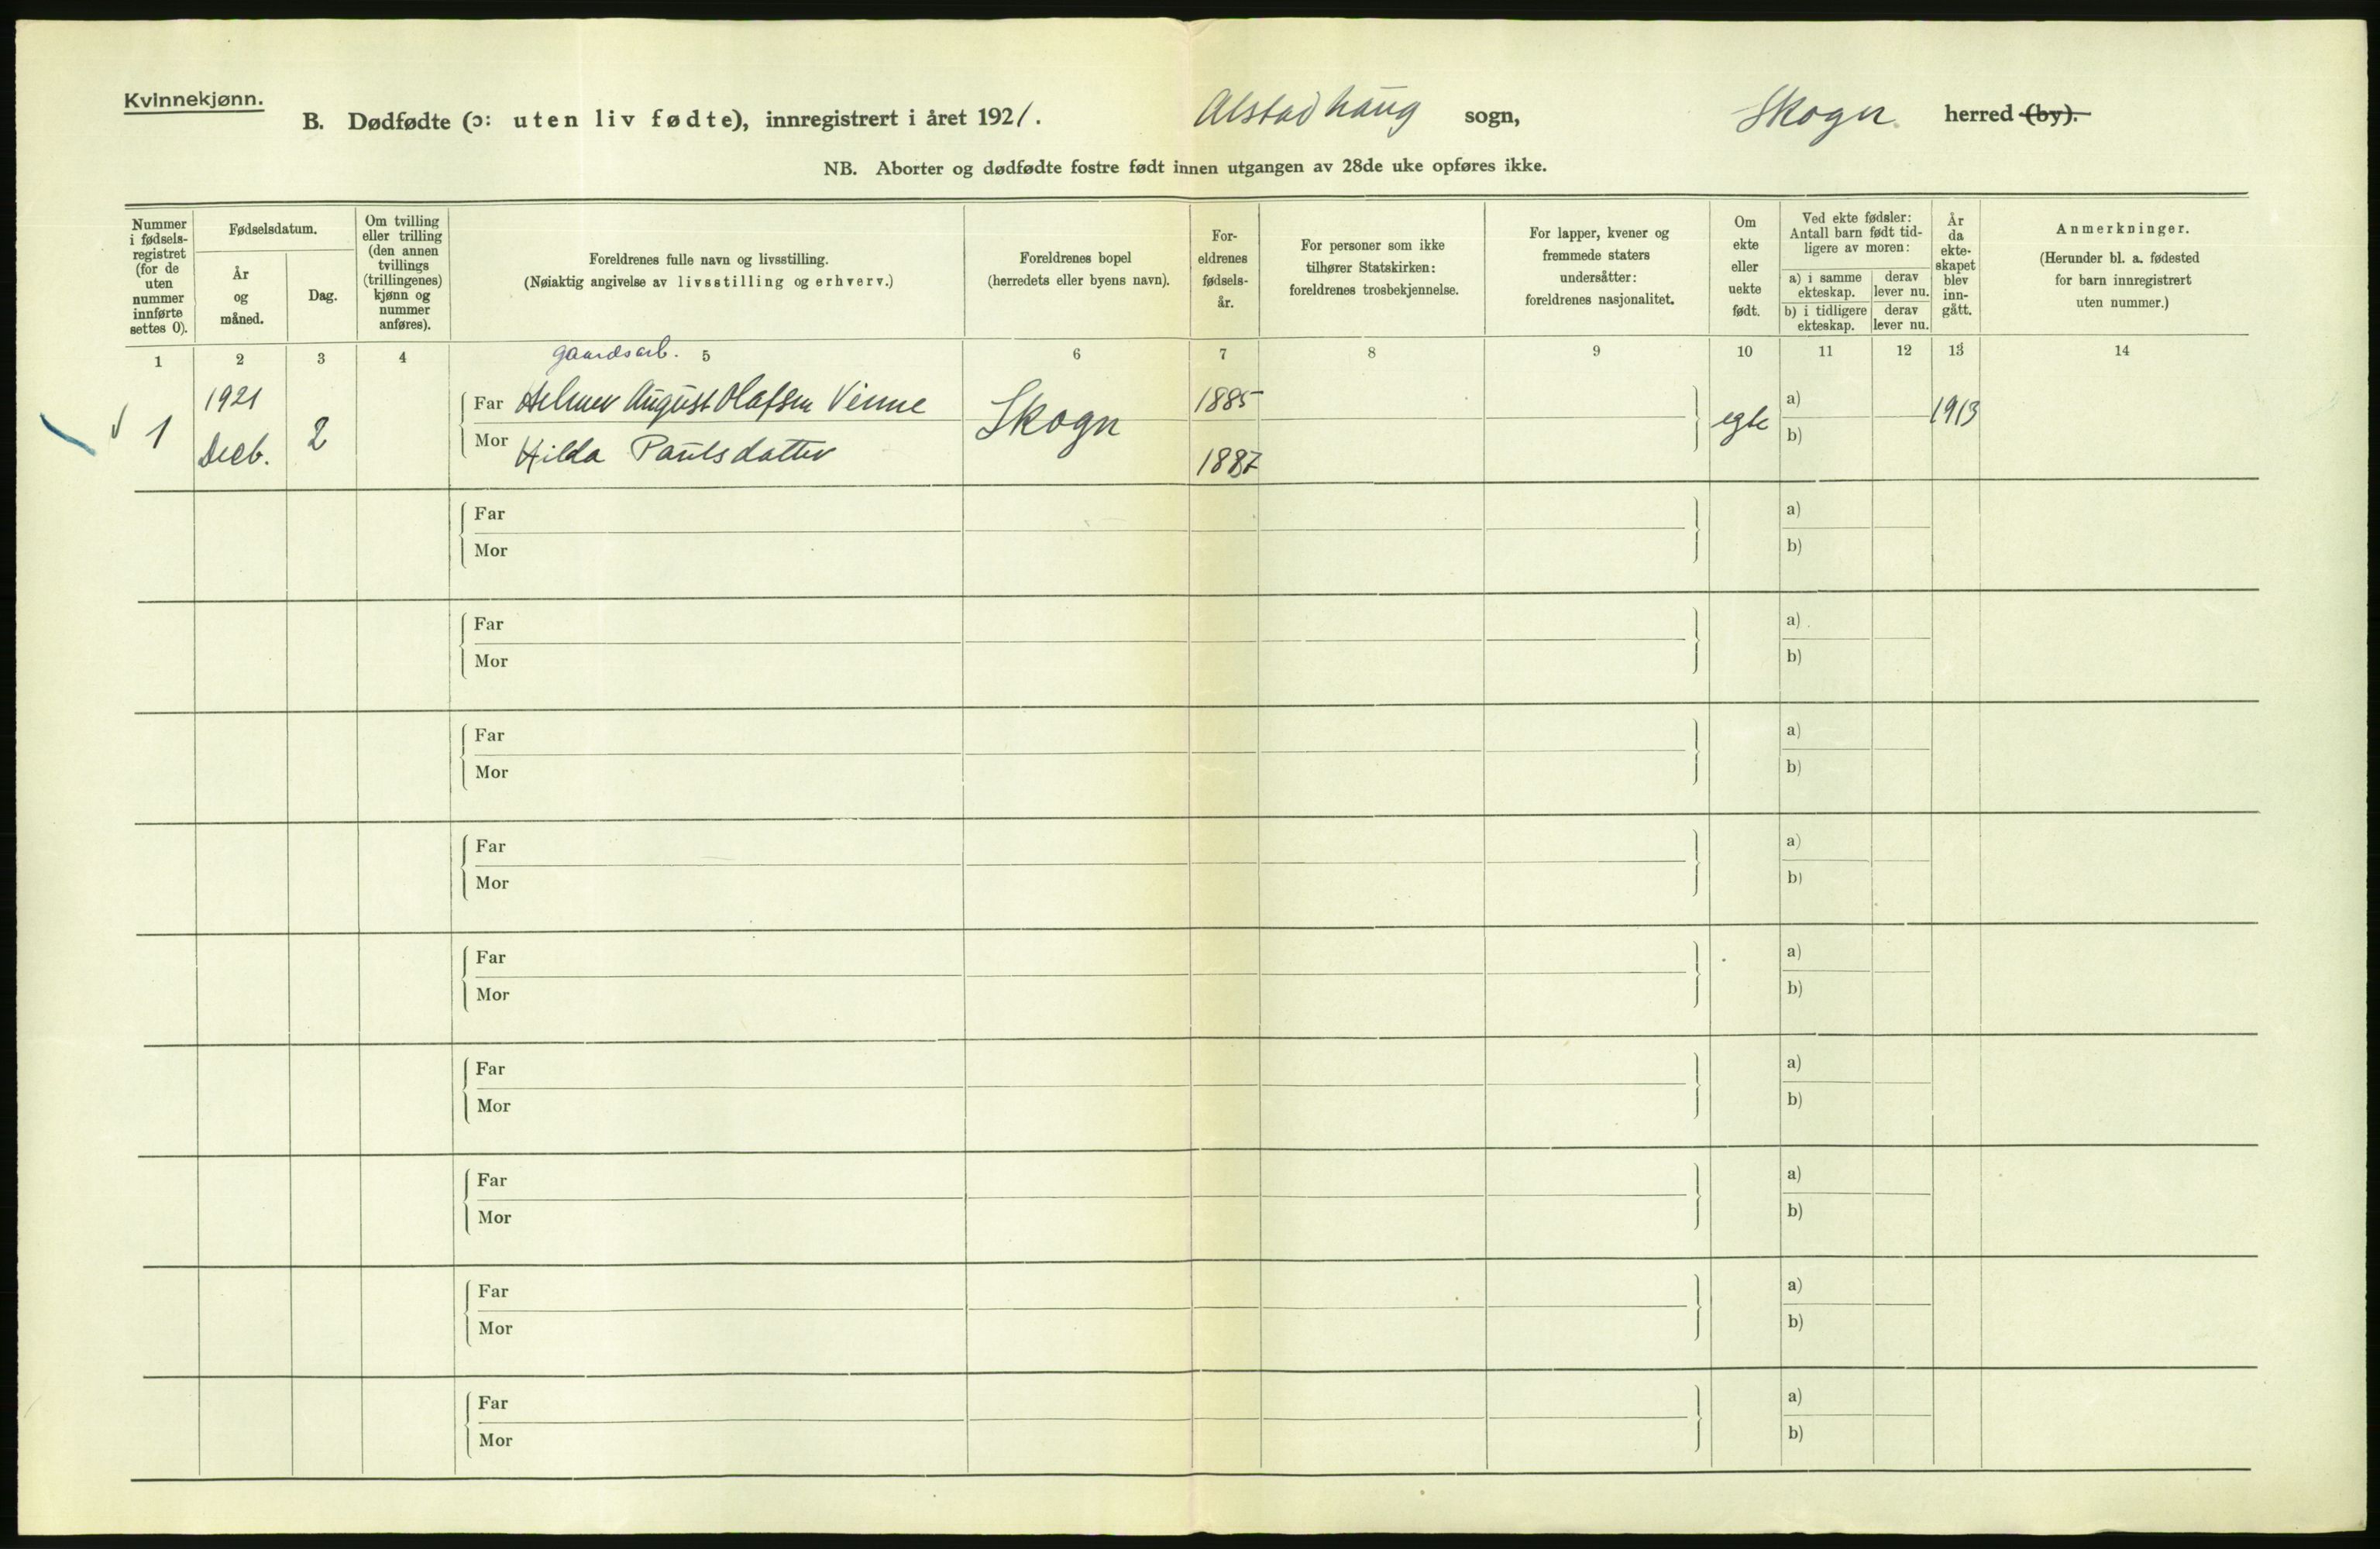 Kvinnekjønn.
B. Dødfødte (ɔ: uten liv fødte), innregistrert i året 1921. Alstadhaug sogn, Skogn herred (by).
NB. Aborter og dødfødte fostre født innen utgangen av 28de uke opføres ikke.
Nummer
i fødsels-
registret
(for de
uten
nummer
innførte
settes 0).
Fødselsdatum.
År
og
måned.
Dag.
Om tvilling
eller trilling
(den annen
tvillings
(trillingenes)
kjønn og
nummer
anføres).
Foreldrenes fulle navn og livsstilling.
(Nøiaktig angivelse av livsstilling og erhverv.)
Foreldrenes bopel
(herredets eller byens navn).
For-
eldrenes
fødsels-
år.
For personer som ikke
tilhører Statskirken:
foreldrenes trosbekjennelse.
For lapper, kvener og
fremmede staters
undersåtter:
foreldrenes nasjonalitet.
Om
ekte
eller
uekte
født.
Ved ekte fødsler:
Antall barn født tid-
ligere av moren:
a) i samme
ekteskap.
derav
lever nu.
b) i tidligere
ekteskap.
derav
lever nu.
År
da
ekte-
skapet
blev
inn-
gått.
Anmerkninger.
(Herunder bl. a. fødested
for barn innregistrert
uten nummer.)
1 2 3 4 5 6 7 8 9 10 11 12 13 14
gaardsarb.
1
1921
Decb.
2
Far Helmer August Olafsen Vinne
Mor Hilda Paulsdatter
Skogn
1885
1887
egte
a)
b)
1913
Far
Mor
a)
b)
Far
Mor
a)
b)
Far
Mor
a)
b)
Far
Mor
a)
b)
Far
Mor
a)
b)
Far
Mor
a)
b)
Far
Mor
a)
b)
Far
Mor
a)
b)
Far
Mor
a)
b)